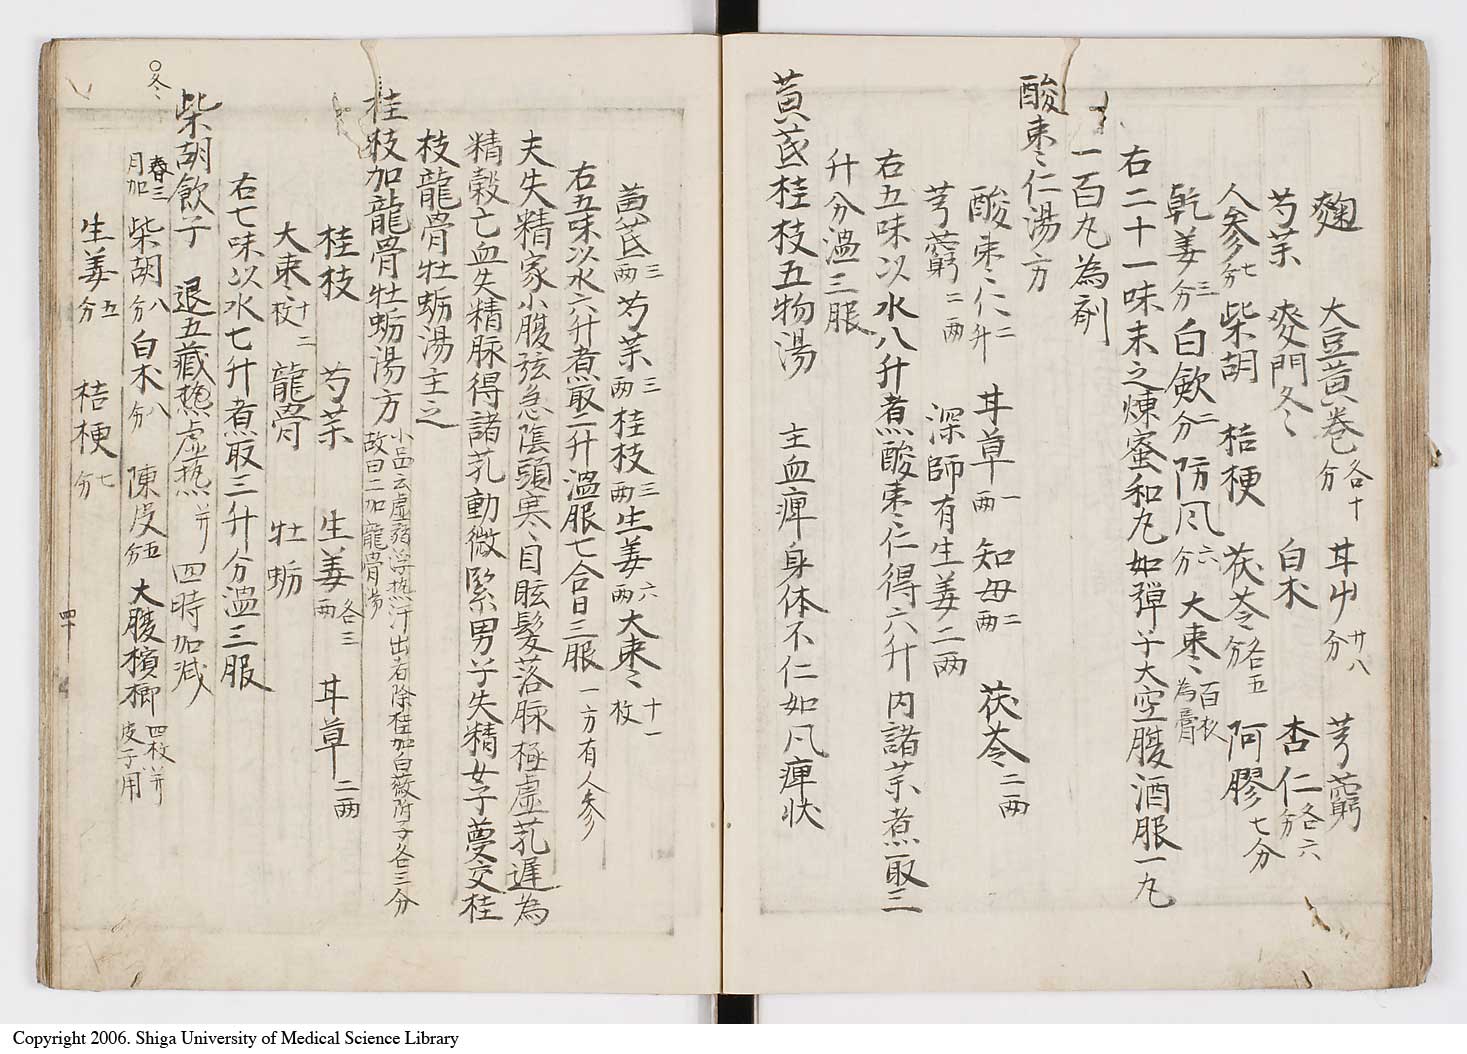 麹 大豆黄巻各十分 甘艸廿八分 芎藭
芍薬 麦門冬 白朮 杏仁各六分
人参七分 柴胡 桔梗 茯苓各五分 阿膠七分
乾姜三分 白歛二分 防風六分 大棗百枚為膏
右二十一味末之煉蜜和丸如弾子大空腹酒服一丸
一百丸為剤
酸棗仁湯方
酸棗仁二升 甘草一両 知母二両 茯苓二両
芎藭二両 深師有生姜二両
右五味以水八升煮酸棗仁得六升内諸薬煮取三
升分温三服
黄芪桂枝五物湯 主血痺身体不仁如風痺状
黄芪三両 芍薬三両 桂枝三両 生姜六両 大棗十一枚
右五味以水六升煮取二升温服七合日三服 一方有人参
夫失精家小腹弦急陰頭寒目眩髪落脉極虚芤遅為
精穀亡血失精脉得諸芤動微緊男子失精女子夢交桂
枝龍骨牡蛎湯主之
桂枝加龍骨牡蛎湯方 小品云虚弱浮热汗出者除桂加白薇附子各三分
故曰二加龍骨湯
桂枝 芍薬 生姜各三両 甘草二両
大棗十二枚 龍骨 牡蛎
右七味以水七升煮取三升分温三服
○冬
柴胡飲子 退五蔵热虚热并四時加減
春三月加 柴胡八分 白朮八分 陳皮五分 大腹檳榔四枚并皮子用
生姜五分 桔梗七分
四十
Copyright 2006. Shiga University of Medical Science Library